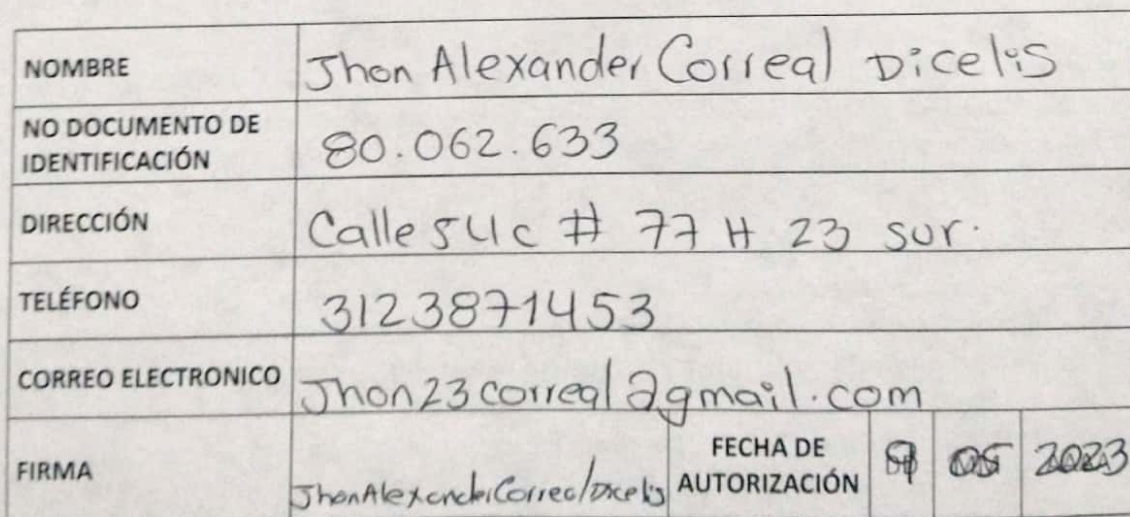 NOMBRE Jhon Alexander Correal Dicelis
NO DOCUMENTO DE
IDENTIFICACIÓN 80.062.633
DIRECCIÓN Calle 54c # 77 H 23 sur.
TELÉFONO 3123871453
CORREO ELECTRONICO Jhon23correal@gmail.com
FIRMA JhonAlexanderCorrealDicelis
FECHA DE
AUTORIZACIÓN 05 2023